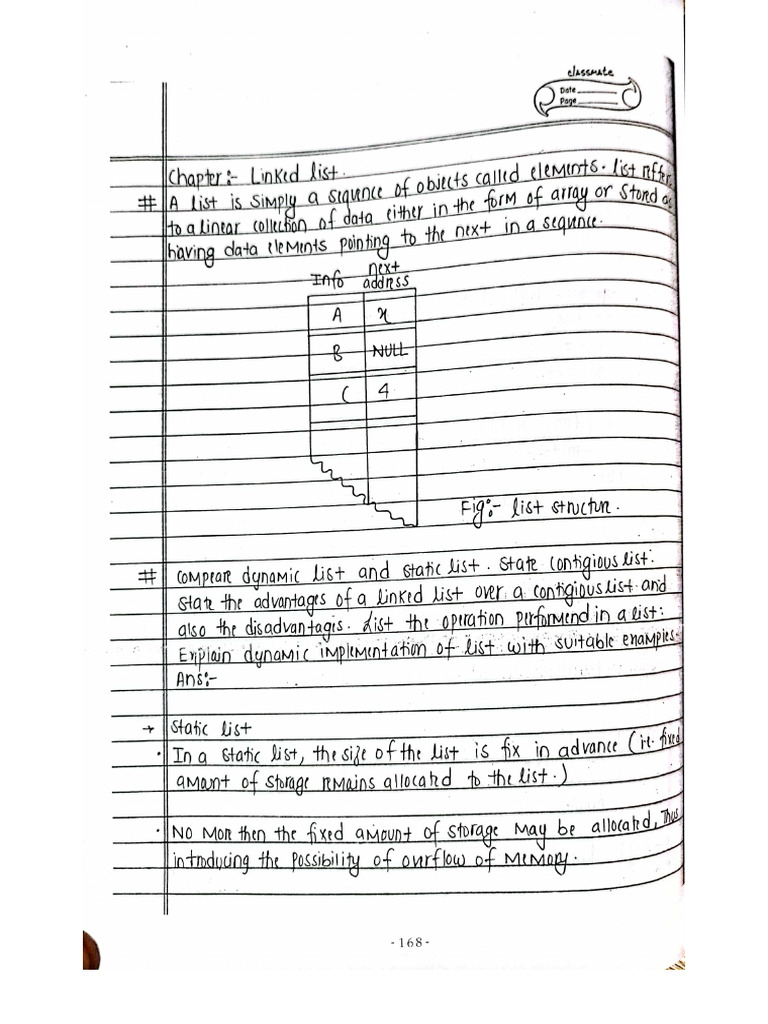 classmate
Date
Page
Chapter:- Linked list.
# A list is simply a sequence of objects called elements. List reffer
to a linear collection of data either in the form of array or stored as
having data elements pointing to the next in a sequnce.
Info next address
A x
B NULL
C 4
Fig:- list structure.
# Compeare dynamic list and static list. State contigious list.
State the advantages of a linked list over a contigious list and
also the disadvantages. List the operation performend in a list:
Explain dynamic implementation of list with suitable examples.
Ans:-
→ Static list
• In a static list, the size of the list is fix in advance (i.e. fixed
amount of storage remains allocated to the list.)
• No more then the fixed amount of storage may be allocated, Thus
introducing the possibility of overflow of memory.
- 168 -